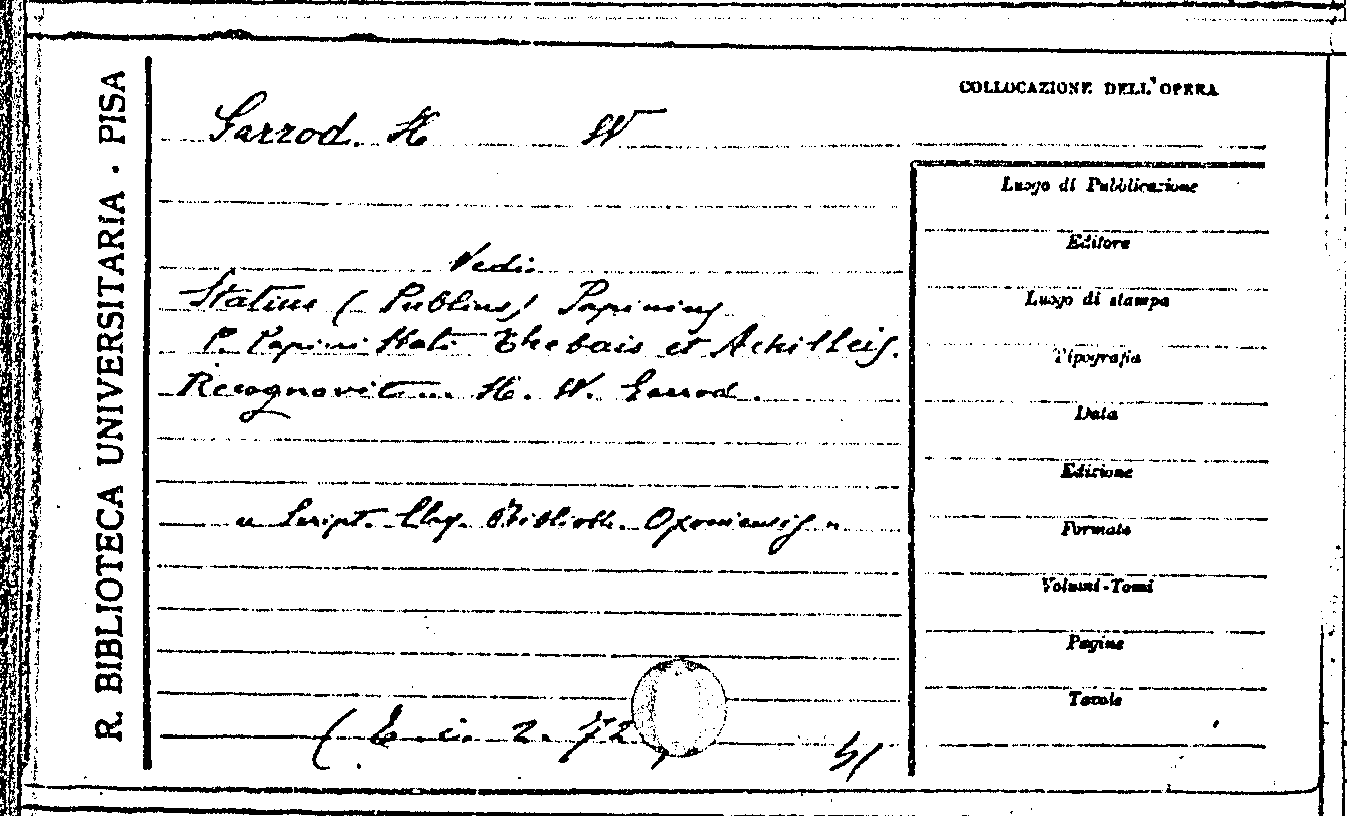 R. BIBLIOTECA UNIVERSITARIA · PISA
COLLOCAZIONE DELL'OPERA
Garrod. H W
Vedi:
Statius (Publius) Papinius
P. Papini Stati Thebais et Achilleis.
Recognovit H. W. Garrod.
" Script. Clas. Biblioth. Oxoniensis "
( E. c. 2. 72
Luogo di Pubblicazione
Editore
Luogo di stampa
Tipografia
Data
Edizione
Formato
Volumi-Tomi
Pagine
Tavole